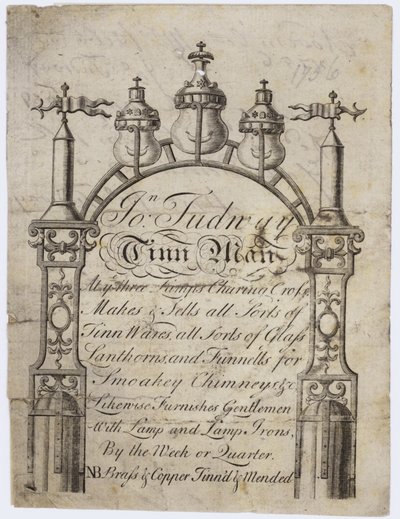 Jo:n Tudwyy
Tinn Man
At y.e three Lamps Charing Cross
Makes & Sells all Sorts of
Tinn Wares, all Sorts of Glass
Lanthorns, and Funnells for
Smoakey Chimneys, &c
Likewise Furnishes Gentlemen
With Lamp and Lamp Irons,
By the Week or Quarter.
NB Brass & Copper Tinn'd & Mended
1756